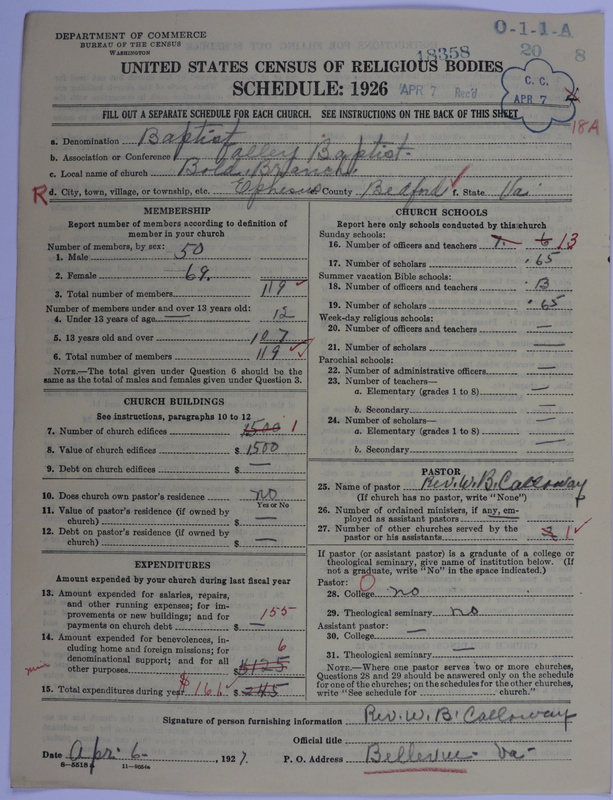 DEPARTMENT OF COMMERCE
BUREAU OF THE CENSUS
WASHINGTON
O-1-1-A
18358
20 8
UNITED STATES CENSUS OF RELIGIOUS BODIES
SCHEDULE: 1926
APR 7 Rec'd
C. C.
APR 7
18A
FILL OUT A SEPARATE SCHEDULE FOR EACH CHURCH. SEE INSTRUCTIONS ON THE BACK OF THIS SHEET
a. Denomination Baptist
b. Association or Conference Valley Baptist
c. Local name of church Bold Branch
R d. City, town, village, or township, etc. Ephesus e. County Bedford f. State Va.
MEMBERSHIP
Report number of members according to definition of
member in your church
Number of members, by sex:
1. Male 50
2. Female 69.
3. Total number of members 119
Number of members under and over 13 years old:
4. Under 13 years of age 12
5. 13 years old and over 107
6. Total number of members 119
NOTE.—The total given under Question 6 should be
same as the total of males and females given under Question 3.
CHURCH BUILDINGS
See instructions, paragraphs 10 to 12
7. Number of church edifices 1500 1
8. Value of church edifices $ 1500
9. Debt on church edifices $ —
10. Does church own pastor's residence no
Yes or No
11. Value of pastor's residence (if owned by
church) $ —
12. Debt on pastor's residence (if owned by
church) $ —
EXPENDITURES
Amount expended by your church during last fiscal year
13. Amount expended for salaries, repairs,
and other running expenses; for im-
provements or new buildings; and for
payments on church debt $ — 155
14. Amount expended for benevolences, in-
cluding home and foreign missions; for
denominational support; and for all
other purposes $ $125 6
15. Total expenditures during year $161 $ 245
CHURCH SCHOOLS
Report here only schools conducted by this church
Sunday schools:
16. Number of officers and teachers 7. 6 13
17. Number of scholars 65
Summer vacation Bible schools:
18. Number of officers and teachers 13
19. Number of scholars 65
Week-day religious schools:
20. Number of officers and teachers —
21. Number of scholars —
Parochial schools:
22. Number of administrative officers —
23. Number of teachers—
a. Elementary (grades 1 to 8) —
b. Secondary —
24. Number of scholars—
a. Elementary (grades 1 to 8) —
b. Secondary —
PASTOR
25. Name of pastor Rev. W. B. Calloway
(If church has no pastor, write "None")
26. Number of ordained ministers, if any, em-
ployed as assistant pastors —
27. Number of other churches served by the
pastor or his assistants 1
If pastor (or assistant pastor) is a graduate of a college or
theological seminary, give name of institution below. (If
not a graduate, write "No" in the space indicated.)
Pastor: O
28. College no
29. Theological seminary no
Assistant pastor:
30. College —
31. Theological seminary —
NOTE.—Where one pastor serves two or more churches,
Questions 28 and 29 should be answered only on the schedule
for one of the churches; on the schedules for the other churches,
write "See schedule for church."
Signature of person furnishing information Rev. W. B. Calloway
Official title
Date Apr. 6, 1927. P. O. Address Bellevue Va
8—5518 11—9054a